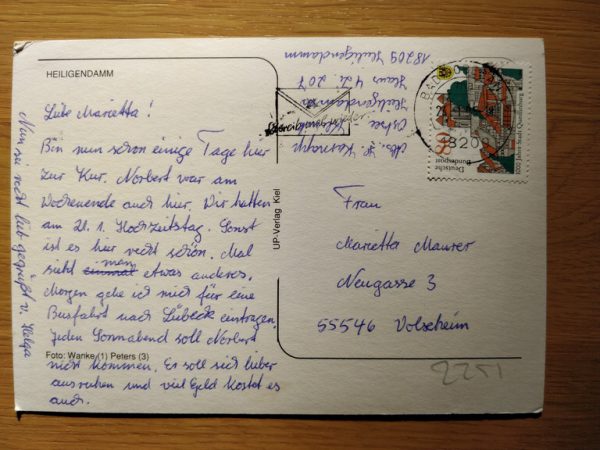 HEILIGENDAMM
Liebe Marietta!
Bin nun schon einige Tage hier
zur Kur. Norbert war am
Wochenende auch hier. Wir hatten
am 21.1. Hochzeitstag. Sonst
ist es hier recht schön. Mal
sieht man etwas anderes.
Morgen gehe ich mich für eine
Busfahrt nach Lübeck eintragen.
Jeden Sonnabend soll Norbert
Foto: Wanke (1) Peters (3)
nicht kommen. Er soll sich lieber
ausruhen und viel Geld kostet es
auch.
Nun sei recht lieb gegrüßt v. Helga
UP-Verlag, Kiel
Abs. H.
Ostsee
Heiligendamm
Haus 4 Zi. 207
18209 Heiligendamm
Schreib mal wieder
BAD
18209
80
Deutsche
Bundespost
1000 Jahre Stadt Quedlinburg
Frau
Marietta Maurer
Neugasse 3
55546 Volxheim
2251